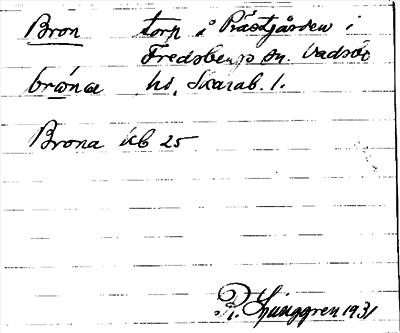 Bron torp i Prästgården i
Fredsbergs sn. Vadsbo
brónα hd, Skarab. l.
Brona kb 25
R. Ljunggren 1931